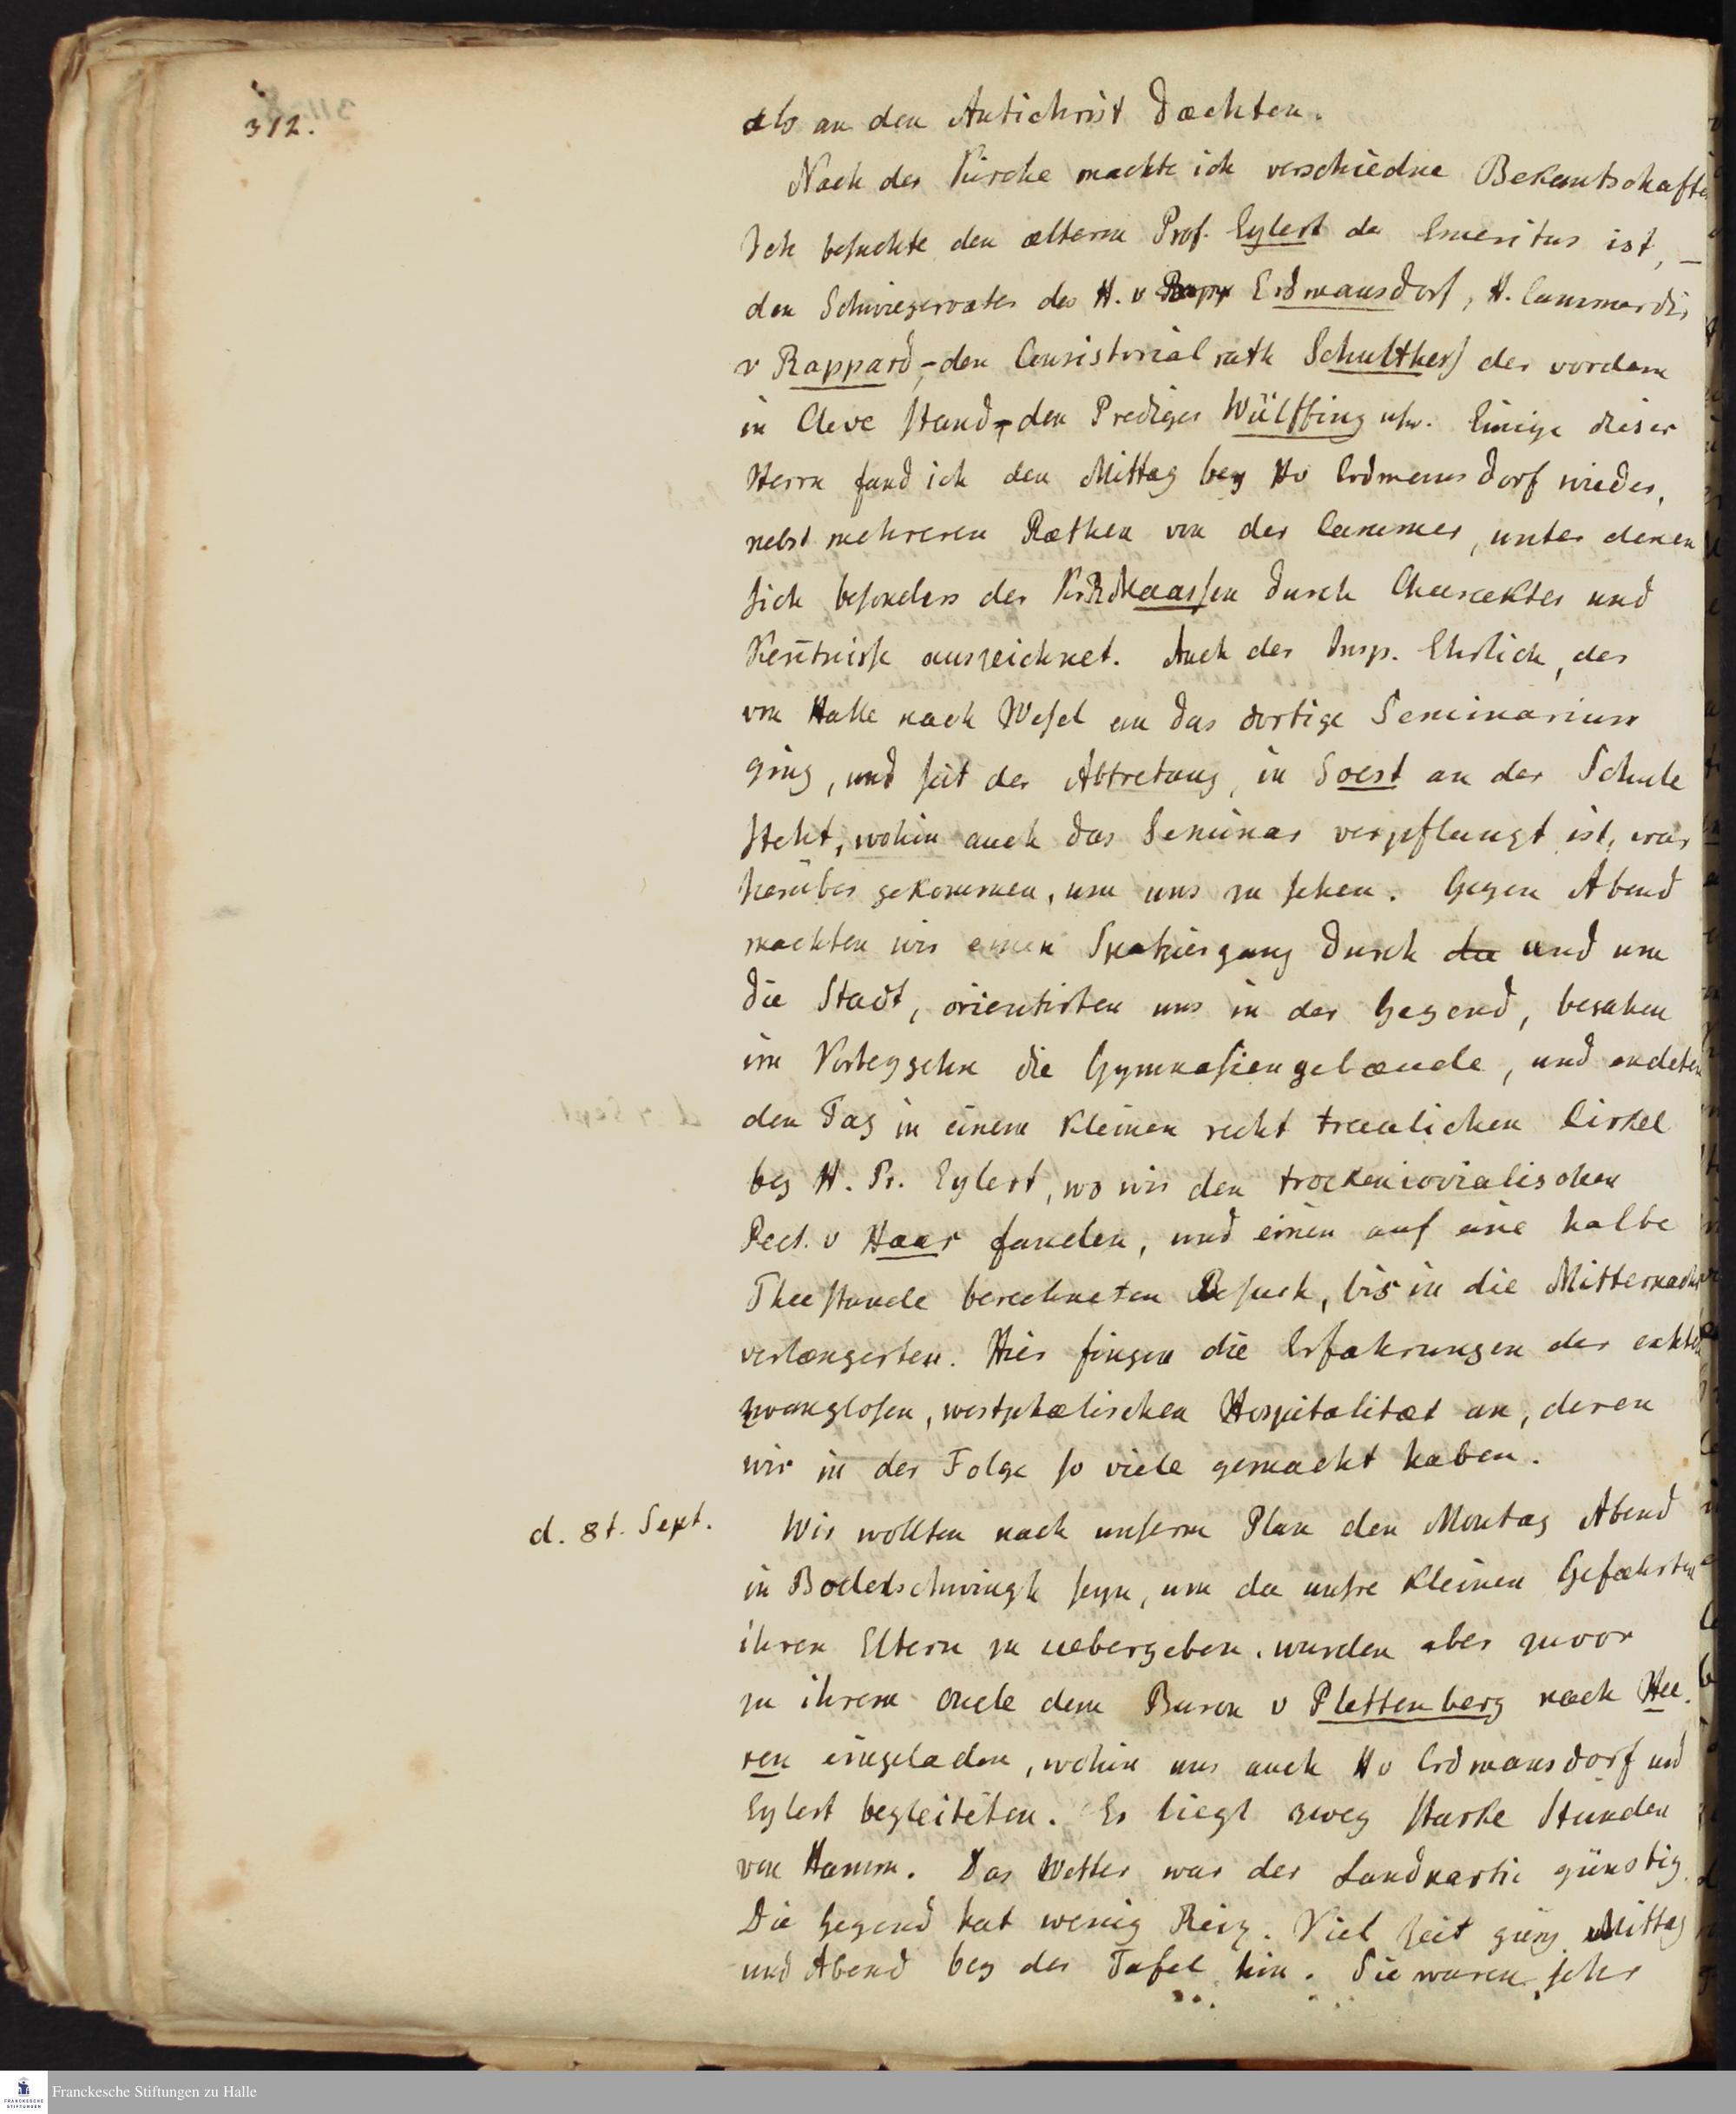 312.
als an den Antichrist dæchten.
Nach der Kirche machte ich verschiedne Bekantschafte
Ich besuchte den ælterm Prof. Eylert der Emeritus ist, –
den Schwiegervater des H. v Erdmansdorf, H. Cammerdir
v Rappard, – den Consistorialrath Schulthess der vordem
in Cleve stand, – den Prediger Wülffing usw. Einige dieser
Herrn fand ich den Mittag bey Hv Erdmensdorf wieder,
nebst mehreren Ræthen von der Cammer, unter denen
sich besonders der KrR Maassen durch Charakter und
Kentnisse auszeichnet. Auch der Insp. Ehrlich, der
von Halle nach Wesel an das dortige Seminarium
ging, und seit der Abtretung, in Soest an der Schule
steht, wohin auch das Seminar verpflanzt ist, war
herüber gekommen, um uns zu sehen. Gegen Abend
machten wir einen Spatziergang durch die und um
die Stadt, orientirten uns in der Gegend, besahen
im Vorbeygehn die Gymnasiengebæude, und endeten
den Tag in einem kleinen recht traulichen Cirkel
bey H. Pr. Eylert, wo wir den trockeniovialischen
Pred. v Haar fanden, und einen auf eine halbe
Theestunde berechneten Besuch, bis in die Mitternacht
verlængerten. Hier fingen die Erfahrungen der echten
zwanglosen, westphælischen Hospitalitæt an, deren
wir in der Folge so viele gemacht haben.
d. 8t. Sept.
Wir wollten nach unserm Plan den Montag Abend
in Bodelschwingh seyn, um da unsre kleinen Gefæhrten
ihren Eltern zu uebergeben, wurden aber zuvor
zu ihrem Oncle dem Baron v Plettenberg nach Hee-
ren eingeladen, wohin uns auch Hv Erdmansdorf und
Eylert begleiteten. Es liegt zwey starke Stunden
von Hamm. Das Wetter war der Landpartie günstig.
Die Gegend hat wenig Reiz. Viel Zeit ging Mittag
und Abend bey der Tafel hin. Sie waren sehr
Franckesche Stiftungen zu Halle
FRANCKESCHE
STIFTUNGEN